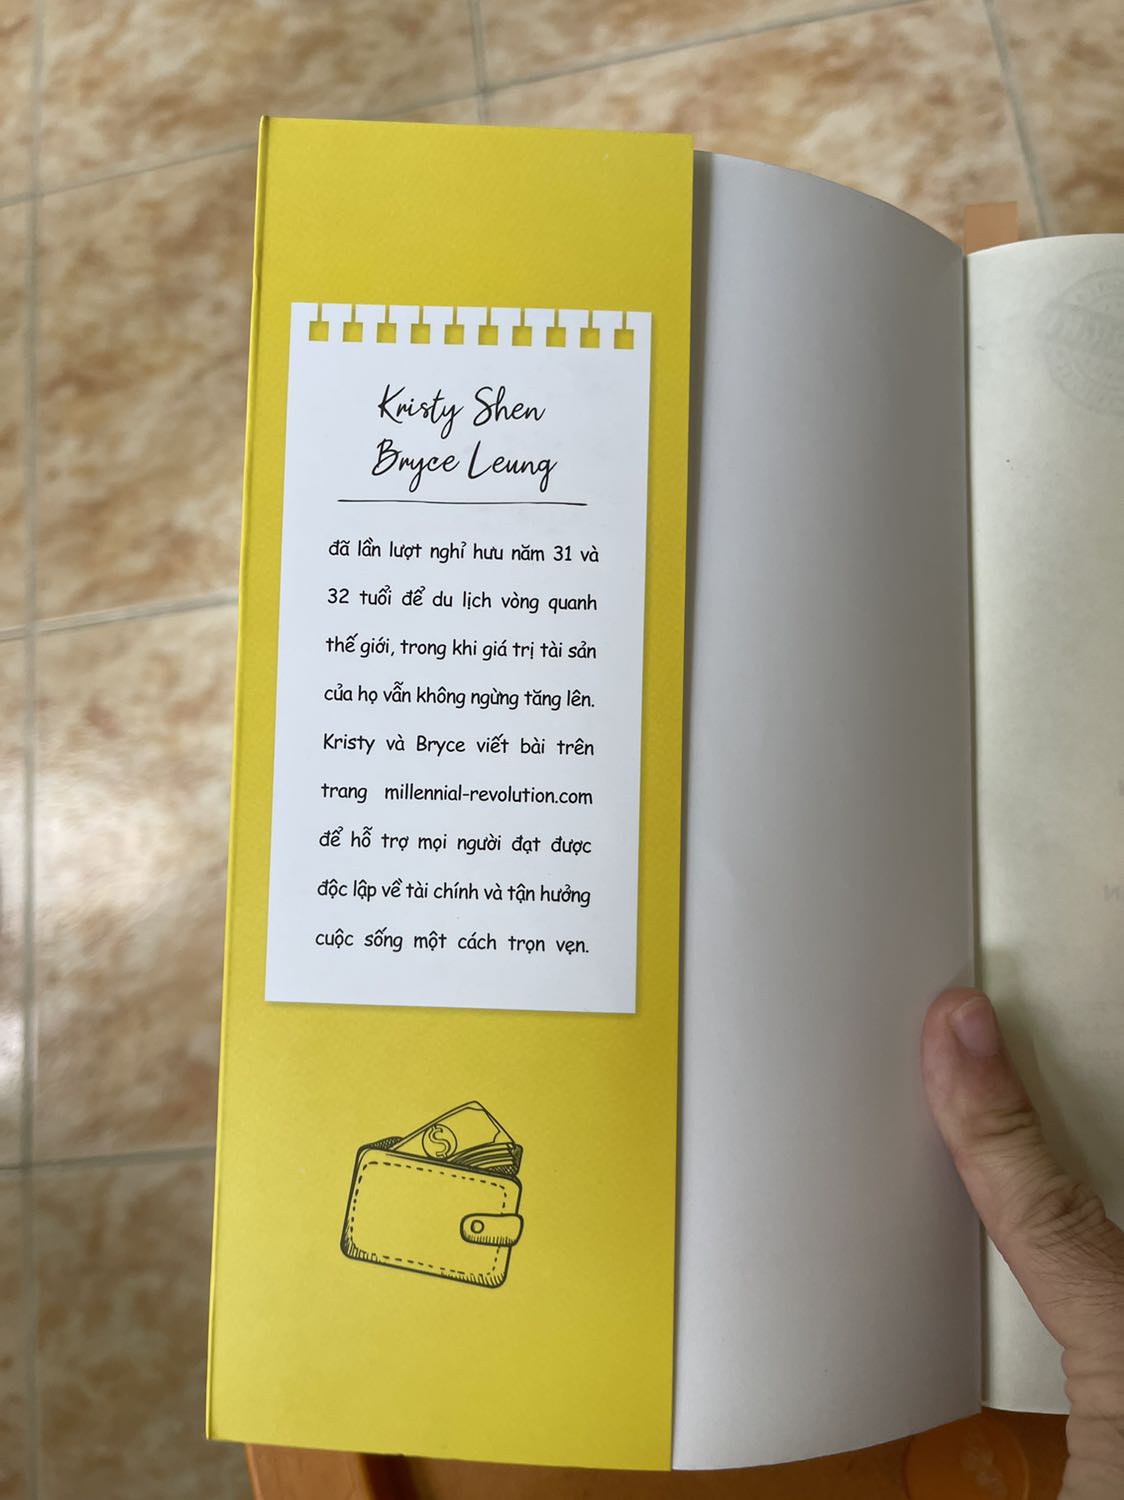 Kristy Shen
Bryce Leung
đã lần lượt nghỉ hưu năm 31 và
32 tuổi để du lịch vòng quanh
thế giới, trong khi giá trị tài sản
của họ vẫn không ngừng tăng lên.
Kristy và Bryce viết bài trên
trang millennial-revolution.com
để hỗ trợ mọi người đạt được
độc lập về tài chính và tận hưởng
cuộc sống một cách trọn vẹn.
$